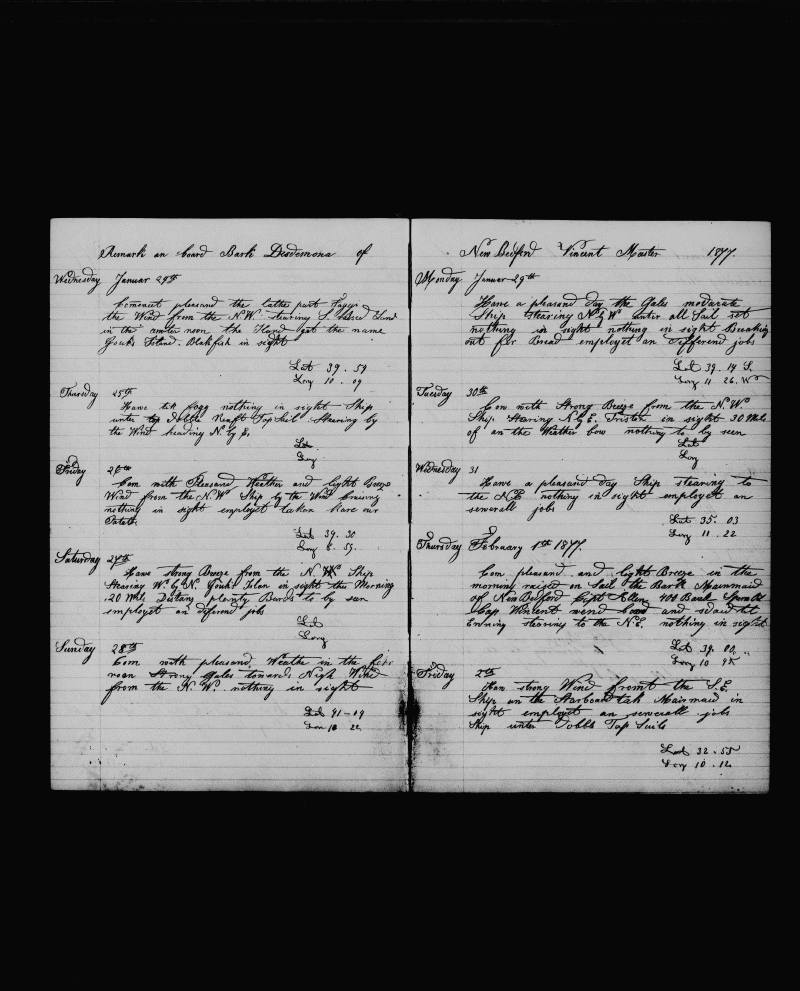 Remark an board Bark Desdemona of
Wednesday Januar 24th
Comenest pleasand the lather part Foggi
the Wind from the N.W. stearing S. raised Iland
in the noon the Iland got the name
Goubs Island. Blakfish in sight
Lat 39. 59
Long 10. 09
Thursday 25th
Have tik fogg nothing in sight Ship
unter Dobble Reaft Top Sail Stearing by
the Wind heading N. by E,
Lat
Long
Friday 26th
Com with Pleasand Weather and light Breeze
Wind from the N.W Ship by the Wind Cruising
nothing in sight employet taken kare our
Potatos
Lat 39. 30
Long 8. 59.
Saturday 27th
Have strong Breeze from the N.W. Ship
Stearing W. by N. Goubs Islan in sight this Morning
20 Mils Distang plenty Bards to by sean
employet an diferend jobs
Lat
Long
Sunday 28th
Com with pleasand Weathe in the for
noon Strong Gales towards Nigh Wind
from the N.W. nothing in sight
Lat 41-09
Lon 10 22
New Bedford Vincent Master 1877.
Monday Januar 29th
Have a pleasand day the Gales modarate
Ship stearing N by W unter all Sail set
nothing in sight nothing in sight Breaking
out for Bread employet an Differend jobs
Lat 39. 14 S.
Long 11 26. W
Tuesday 30th
Com with Strong Breeze from the N.W.
Ship Stearing N by E. Tristen in sight 30 Mils
of an the Weather bow nothing to by seen
Lat
Long
Wednesday 31
Have a pleasand day Ship stearing to
the N.E nothing in sight employet an
severall jobs
Lat 35. 03
Long 11. 22
Thursday February 1st 1877.
Com pleasand and light Breeze in the
morning raised an Sail the Bark Mainmaid
of New Bedford Capt Allen 400 Barls Sperm Oil
Cap Wincent wend board and staid til
Evning stearing to the N.E. nothing in sight
Lat 34. 00. "
Long 10 45
Friday 2th
Have strong Wind fromt the S.E.
Ship an the Starboard tak Mairmaid in
sight employet an severall jobs
Ship unter Dobble Top Sails
Lat 32. 55
Long 10. 12